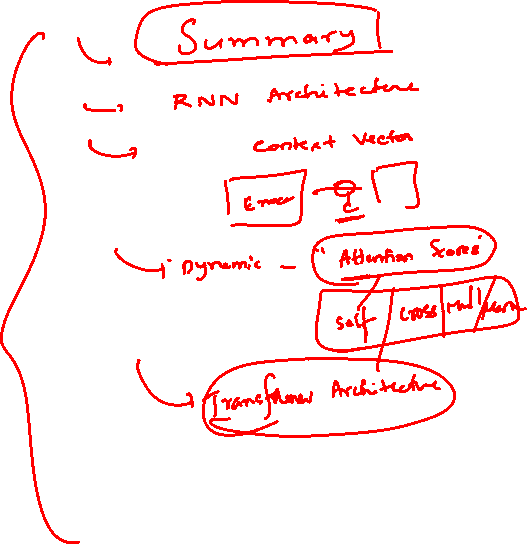 Summary
RNN Architecture
Context Vector
C
Dynamic - "Attention Scores"
Self Cross
Transformer Architecture